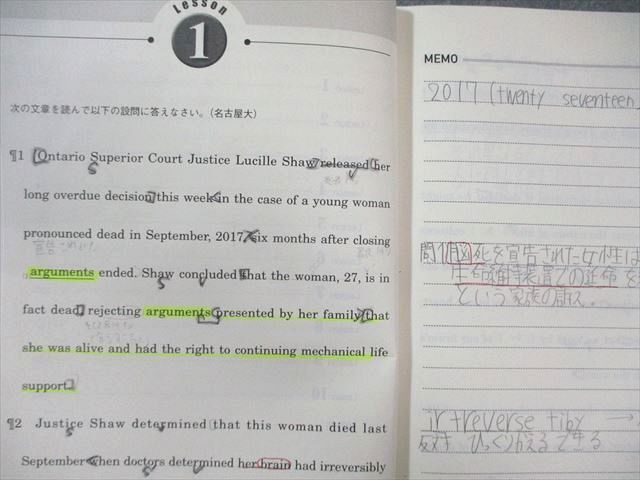 Lesson
1
次の文章を読んで以下の設問に答えなさい。(名古屋大)
¶1 Ontario Superior Court Justice Lucille Shaw released her
long overdue decision this week in the case of a young woman
pronounced dead in September, 2017, six months after closing
arguments ended. Shaw concluded that the woman, 27, is in
fact dead, rejecting arguments presented by her family that
she was alive and had the right to continuing mechanical life
support.
¶2 Justice Shaw determined that this woman died last
September when doctors determined her brain had irreversibly
MEMO
2017 (twenty seventeen
死を宣告された女性は
生命維持装置での延命を
という家族の訴え.
ir + reverse + ibly →
反対 ひっくりかえる できる